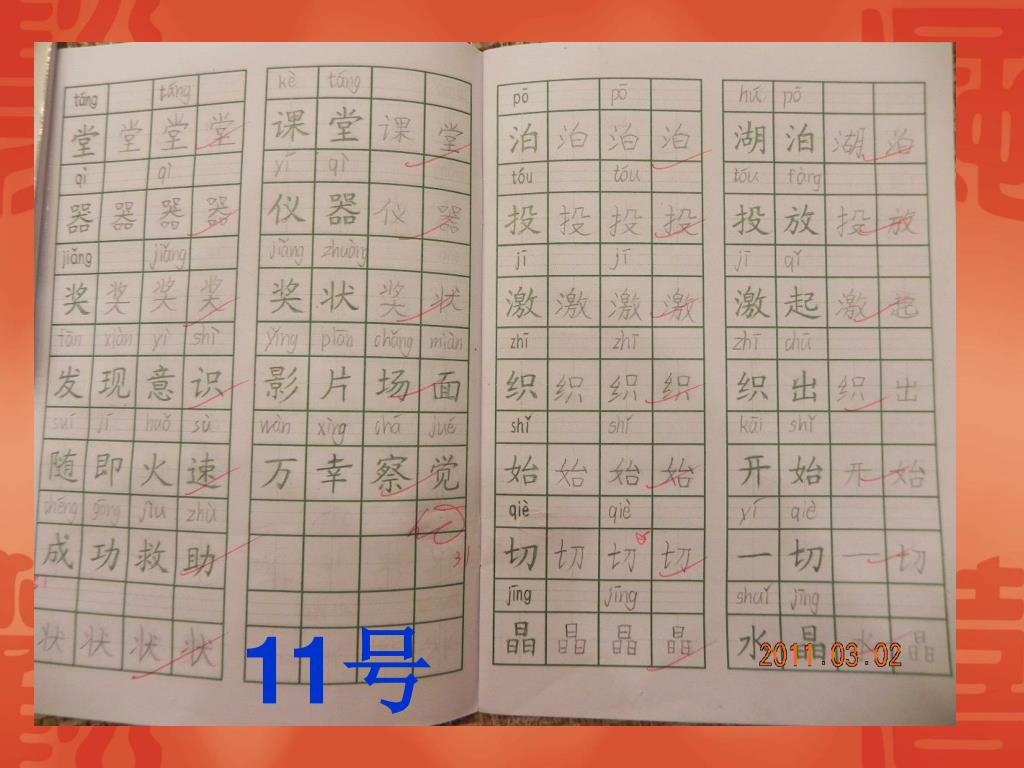 táng táng
堂 堂 堂 堂
qì qì
器 器 器 器
jiǎng jiǎng
奖 奖 奖 奖
fān xiàn yì shì
发 现 意 识
suí jí huǒ sù
随 即 火 速
chéng gōng jiu zhù
成 功 救 助
状 状 状 状
kè táng
课 堂 课 堂
yí qì
仪 器 仪 器
jiǎng zhuàng
奖 状 奖 状
yǐng piān chǎng miàn
影 片 场 面
wàn xìng chá jué
万 幸 察 觉
11号
pō pō
泊 泊 泊 泊
tóu tóu
投 投 投 投
jī jī
激 激 激 激
zhī zhī
织 织 织 织
shǐ shǐ
始 始 始 始
qiè qiè
切 切 切 切
jīng jīng
晶 晶 晶 晶
hú pō
湖 泊 湖 泊
tóu fàng
投 放 投 放
jī qǐ
激 起 激 起
zhī chū
织 出 织 出
kāi shǐ
开 始 开 始
yí qiè
一 切 一 切
shuǐ jīng
水 晶 水 晶
2011.03.02